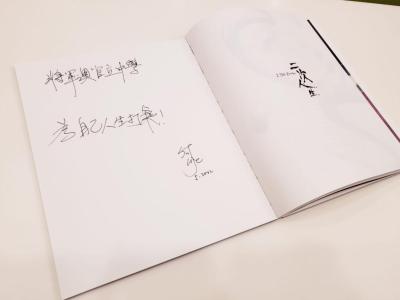 將軍澳官立中學
為自己人生打氣!
二次人生